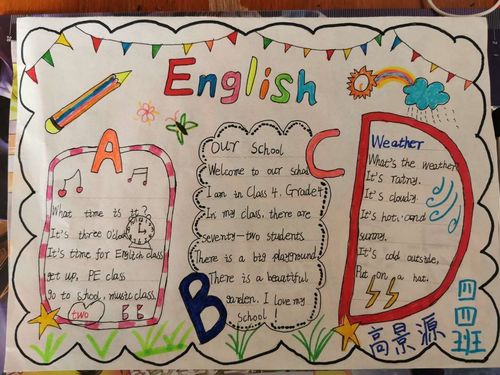 English
A
What time is it?
It's three O'clock
It's time for English class
get up, PE class
go to school, music class.
two
B
Our School
Welcome to our school
I am in Class 4, Grade 4
In my class, there are
seventy-two students
There is a big playground
There is a beautiful
garden. I love my
school!
C
Weather
What's the weather
It's rainy.
It's cloudy.
It's hot, and
sunny.
It's cold outside,
Put on a hat.
四四班
高景源